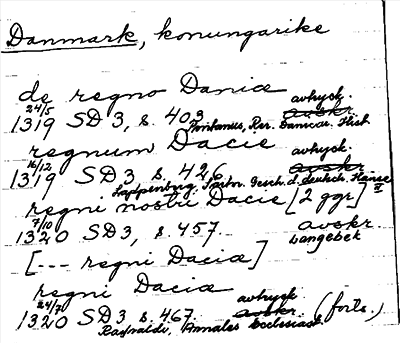 Danmark, konungarike
de regno Dania
avtryck.
24/5
1319 SD 3, s. 403 avskr.
Pontanus, Rer. Danicar. Hist
regnum Dacie
avtryck.
16/12
1319 SD 3, s. 426 avskr.
Lappenberg, Gesch. d. deutsch. Hanse II
regni nostri Dacie [2 ggr]
7/10
1320 SD 3, s. 457. avskr
Langebek
[--- regni Dacia]
regni Dacia
avtryck
24/7
1320 SD 3, s. 467. avskr. (forts.)
Annales Ecclesiast